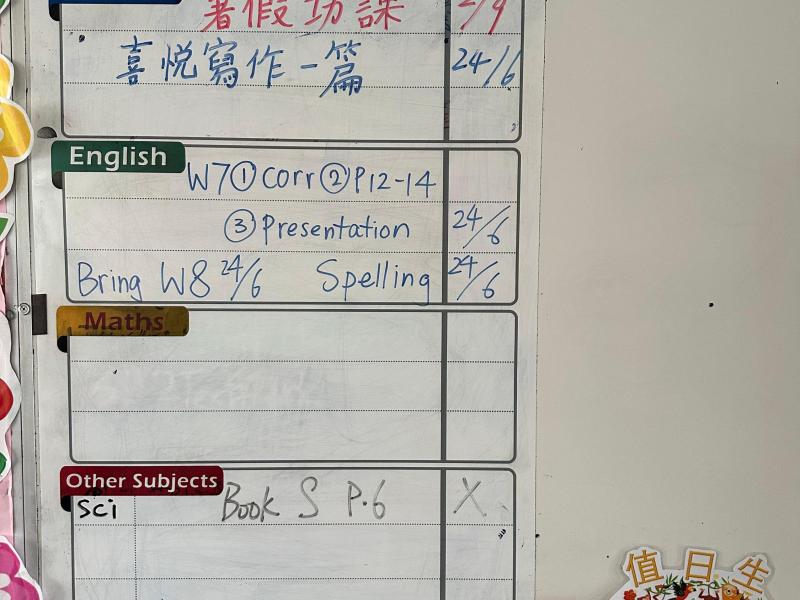 暑假功課 2/9
喜悅寫作一篇 24/6
English
W7①Corr②P12-14
③Presentation 24/6
Bring W8 24/6 Spelling 24/6
Maths
Other Subjects
Sci Book S P.6 X
值日生